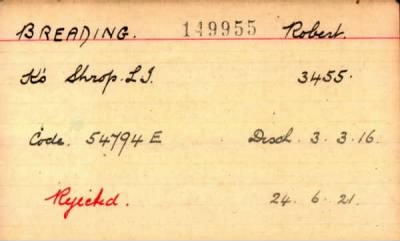 BREADING. 149955 Robert.
K's Shrop. L.I. 3455.
Code. 54794 E Disch. 3. 3. 16.
Rejected. 24. 6. 21.